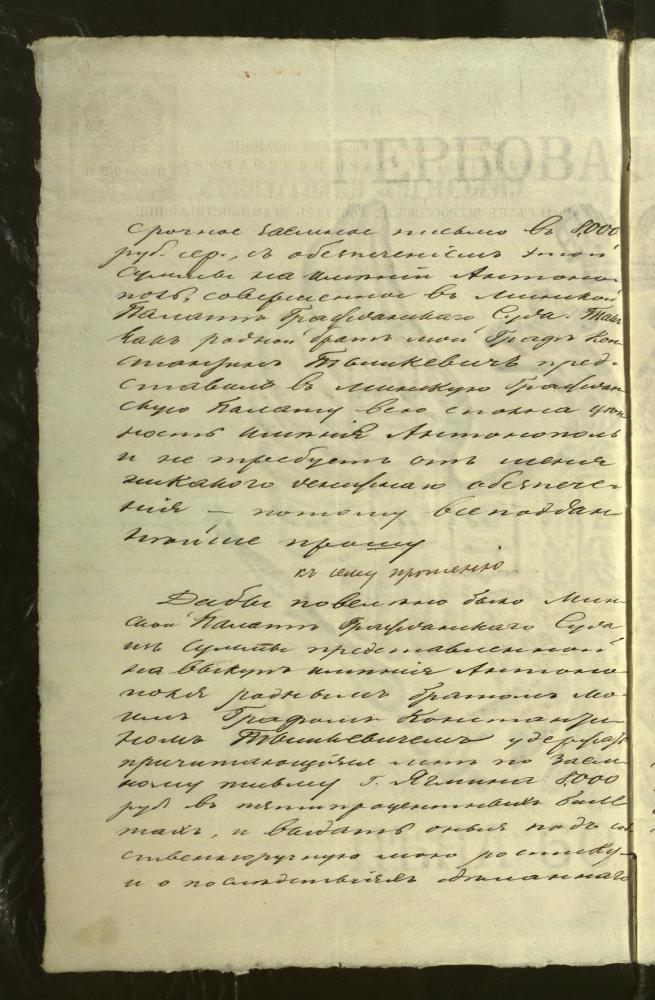 срочное заемное письмо въ 8,000
руб. сер., съ обезпеченіемъ этой
суммы на имѣніи Антоно-
поль, совершенное въ Минской
Палатѣ Гражданскаго Суда. Такъ
какъ родной братъ мой Графъ Кон-
стантинъ Тышкевичъ пред-
ставилъ въ Минскую Граждан-
скую Палату всю сполна цѣн-
ность имѣнія Антонополь
и не требуетъ отъ меня
никакого денежнаго обезпече-
нія — потому всеподдан-
нѣйше прошу
къ сему прошенію
Дабы повелѣно было Мин-
ской Палатѣ Гражданскаго Суда
изъ суммы представленной
на выкупъ имѣнія Антоно-
поля роднымъ братомъ мо-
имъ Графомъ Константи-
номъ Тышкевичемъ удержать
причитающіяся мнѣ по заем-
ному письму Г. Ягмина 8,000
руб въ пятипроцентныхъ биле-
тахъ, и выдать оныя подъ соб-
ственноручную мою росписку
и о послѣдствіяхъ сдѣланнаго